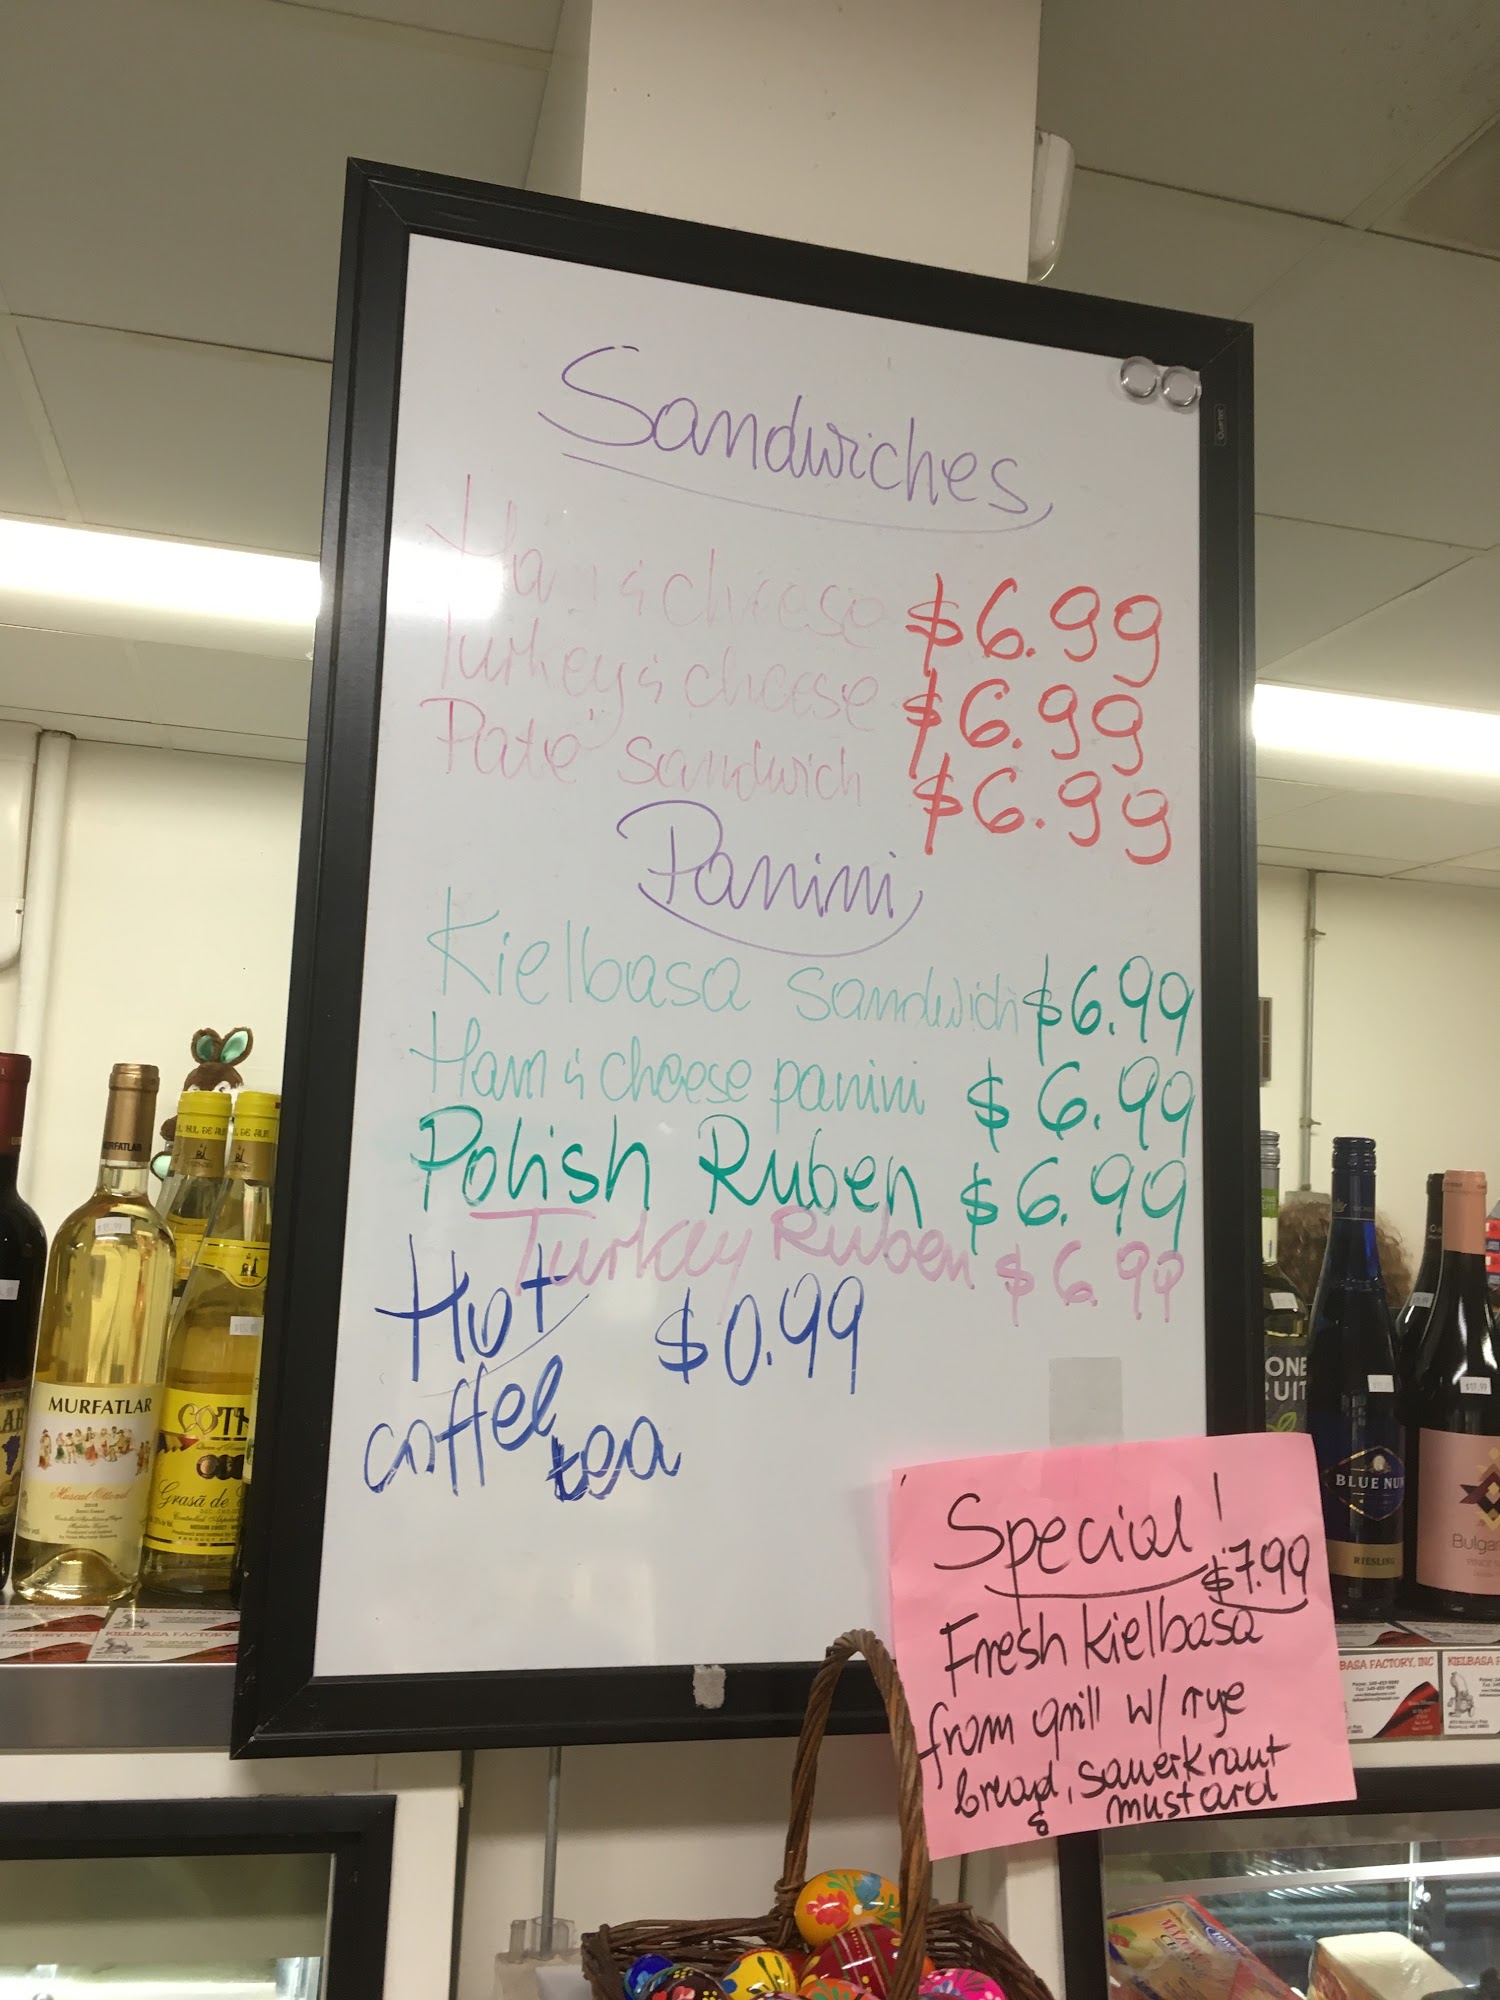 Sandwiches
Ham & cheese $6.99
Turkey & cheese $6.99
Paté sandwich $6.99
Panini
Kielbasa sandwich $6.99
Ham & cheese panini $6.99
Polish Ruben $6.99
Turkey Ruben $6.99
Hot $0.99
coffee
tea
Special!
$7.99
Fresh kielbasa
from grill w/ rye
bread, sauerkraut
& mustard
Quartet
MURFATLAR
MURFATLAR
Muscat Ottonel
2018
COTN
Grasă de
KIELBASA FACTORY,
INC
ONE
RUIT
BLUE NUN
RIESLING
Bulgar
BASA FACTORY, INC
KIELBASA F